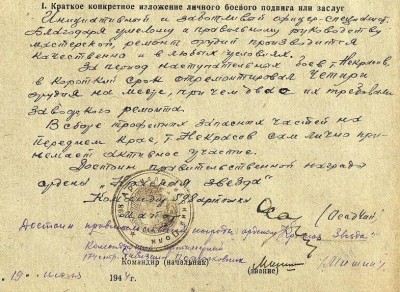 I. Краткое конкретное изложение личного боевого подвига или заслуг
Инициативный и заботливый офицер-специалист.
Благодаря умелому и правильному руководству
мастерской, ремонт орудий производится
качественно и в любых условиях.
За период наступательных боев, т. Некрасов
в короткий срок отремонтировал четыре
орудия на месте, причем два из них требовали
заводского ремонта.
В сборе трофейных запасных частей на
переднем крае, т. Некрасов сам лично при-
нимает активное участие.
Достоин правительственной награды
ордена "Красная Звезда"
Командир
Майор
(Осадчий)
Достоин правительственной награды ордена "Красная Звезда"
Командующий артиллерией
дивизии Подполковник
Командир (начальник)
(звание)
(Мишин)
19 июля 1944 г.